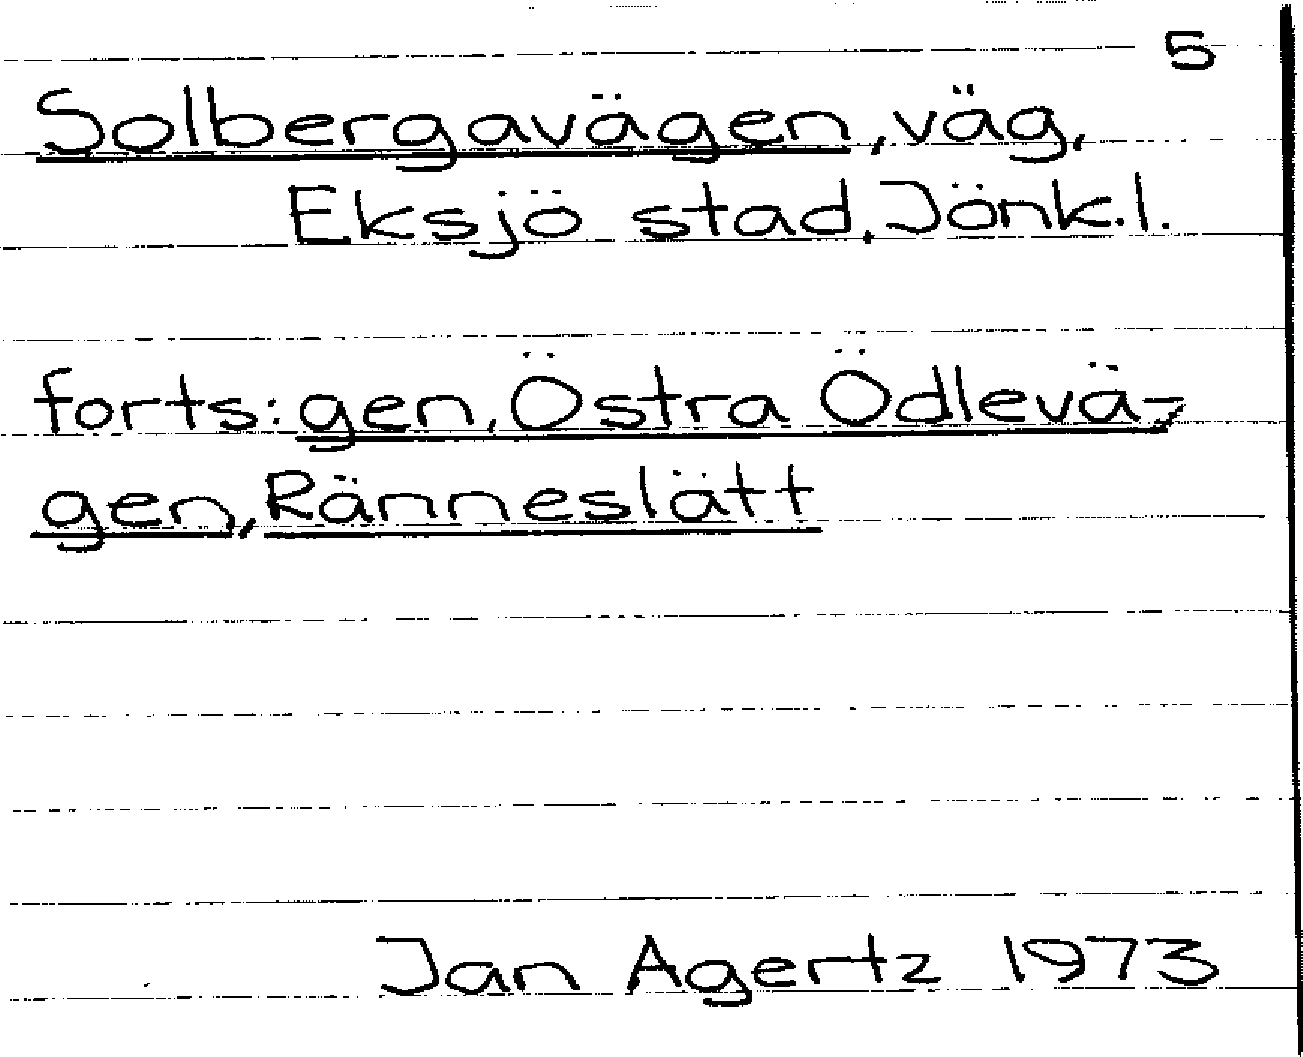 5
Solbergavägen, väg,
Eksjö stad, Jönk.l.
forts: gen, Östra Ödlevä-
gen, Ränneslätt
Jan Agertz 1973